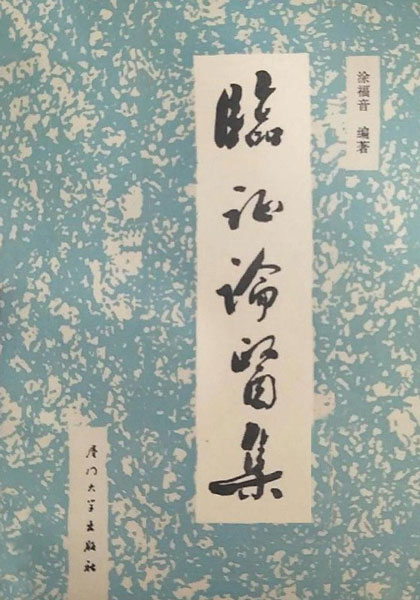 涂福音 编著
临证论医集
厦门大学出版社